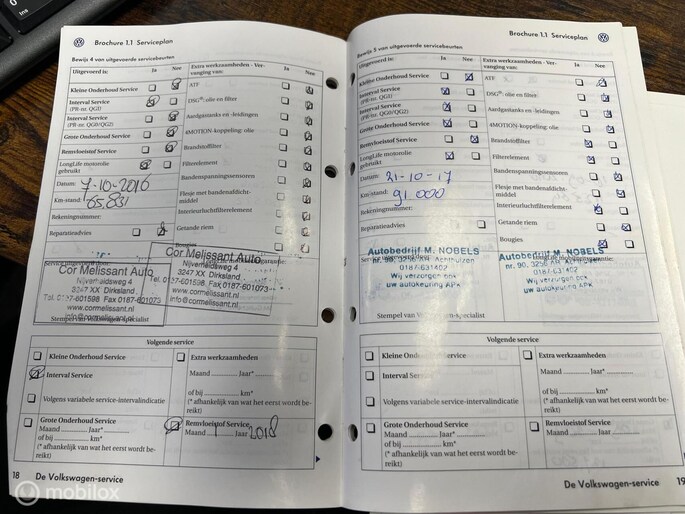 Brochure 1.1 Serviceplan
Bewijs 4 van uitgevoerde servicebeurten
Uitgevoerd is: Ja Nee
Kleine Onderhoud Service
Interval Service
(PR-nr. QG1)
Interval Service
(PR-nr. QG0/QG2)
Grote Onderhoud Service
Remvloeistof Service
LongLife motorolie
gebruikt
Datum: 7-10-2016
Km-stand: 65.831
Rekeningnummer:
Reparatieadvies
Extra werkzaamheden - Ver-
vanging van: Ja Nee
ATF
DSG®: olie en filter
Aardgastanks en -leidingen
4MOTION-koppeling: olie
Brandstoffilter
Filterelement
Bandenspanningssensoren
Flesje met bandenafdicht-
middel
Interieurluchtfilterelement
Getande riem
Bougies
Cor Melissant Auto
Nijverheidsweg 4
3247 XX Dirksland
Fax 0187-601073
www.cormelissant.nl
info@cormelissant.nl
Cor Melissant Auto
Nijverheidsweg 4
3247 XX Dirksland
Tel. 0187-601598 Fax 0187-601073
www.cormelissant.nl
info@cormelissant.nl
Stempel van Volkswagen-specialist
Volgende service
Kleine Onderhoud Service
Interval Service
Volgens variabele service-intervalindicatie
Grote Onderhoud Service
Maand Jaar*
of bij km*
(* afhankelijk van wat het eerst wordt be-
reikt)
Extra werkzaamheden
Maand Jaar*
of bij km*
(* afhankelijk van wat het eerst wordt be-
reikt)
Remvloeistof Service
Maand 1 Jaar 2018
18 De Volkswagen-service
Brochure 1.1 Serviceplan
Bewijs 5 van uitgevoerde servicebeurten
Uitgevoerd is: Ja Nee
Kleine Onderhoud Service
Interval Service
(PR-nr. QG1)
Interval Service
(PR-nr. QG0/QG2)
Grote Onderhoud Service
Remvloeistof Service
LongLife motorolie
gebruikt
Datum: 21-10-17
Km-stand: 91.000
Rekeningnummer:
Reparatieadvies
Extra werkzaamheden - Ver-
vanging van: Ja Nee
ATF
DSG®: olie en filter
Aardgastanks en -leidingen
4MOTION-koppeling: olie
Brandstoffilter
Filterelement
Bandenspanningssensoren
Flesje met bandenafdicht-
middel
Interieurluchtfilterelement
Getande riem
Bougies
Autobedrijf M. NOBELS
nr. 90, 3256 AR Achthuizen
0187-631402
Wij verzorgen ook
uw autokeuring APK
Autobedrijf M. NOBELS
nr. 90, 3256 AR Achthuizen
0187-631402
Wij verzorgen ook
uw autokeuring APK
Stempel van Volkswagen-specialist
Volgende service
Kleine Onderhoud Service
Interval Service
Volgens variabele service-intervalindicatie
Grote Onderhoud Service
Maand Jaar*
of bij km*
(* afhankelijk van wat het eerst wordt be-
reikt)
Extra werkzaamheden
Maand Jaar*
of bij km*
(* afhankelijk van wat het eerst wordt be-
reikt)
Remvloeistof Service
Maand Jaar
De Volkswagen-service 19
mobilox